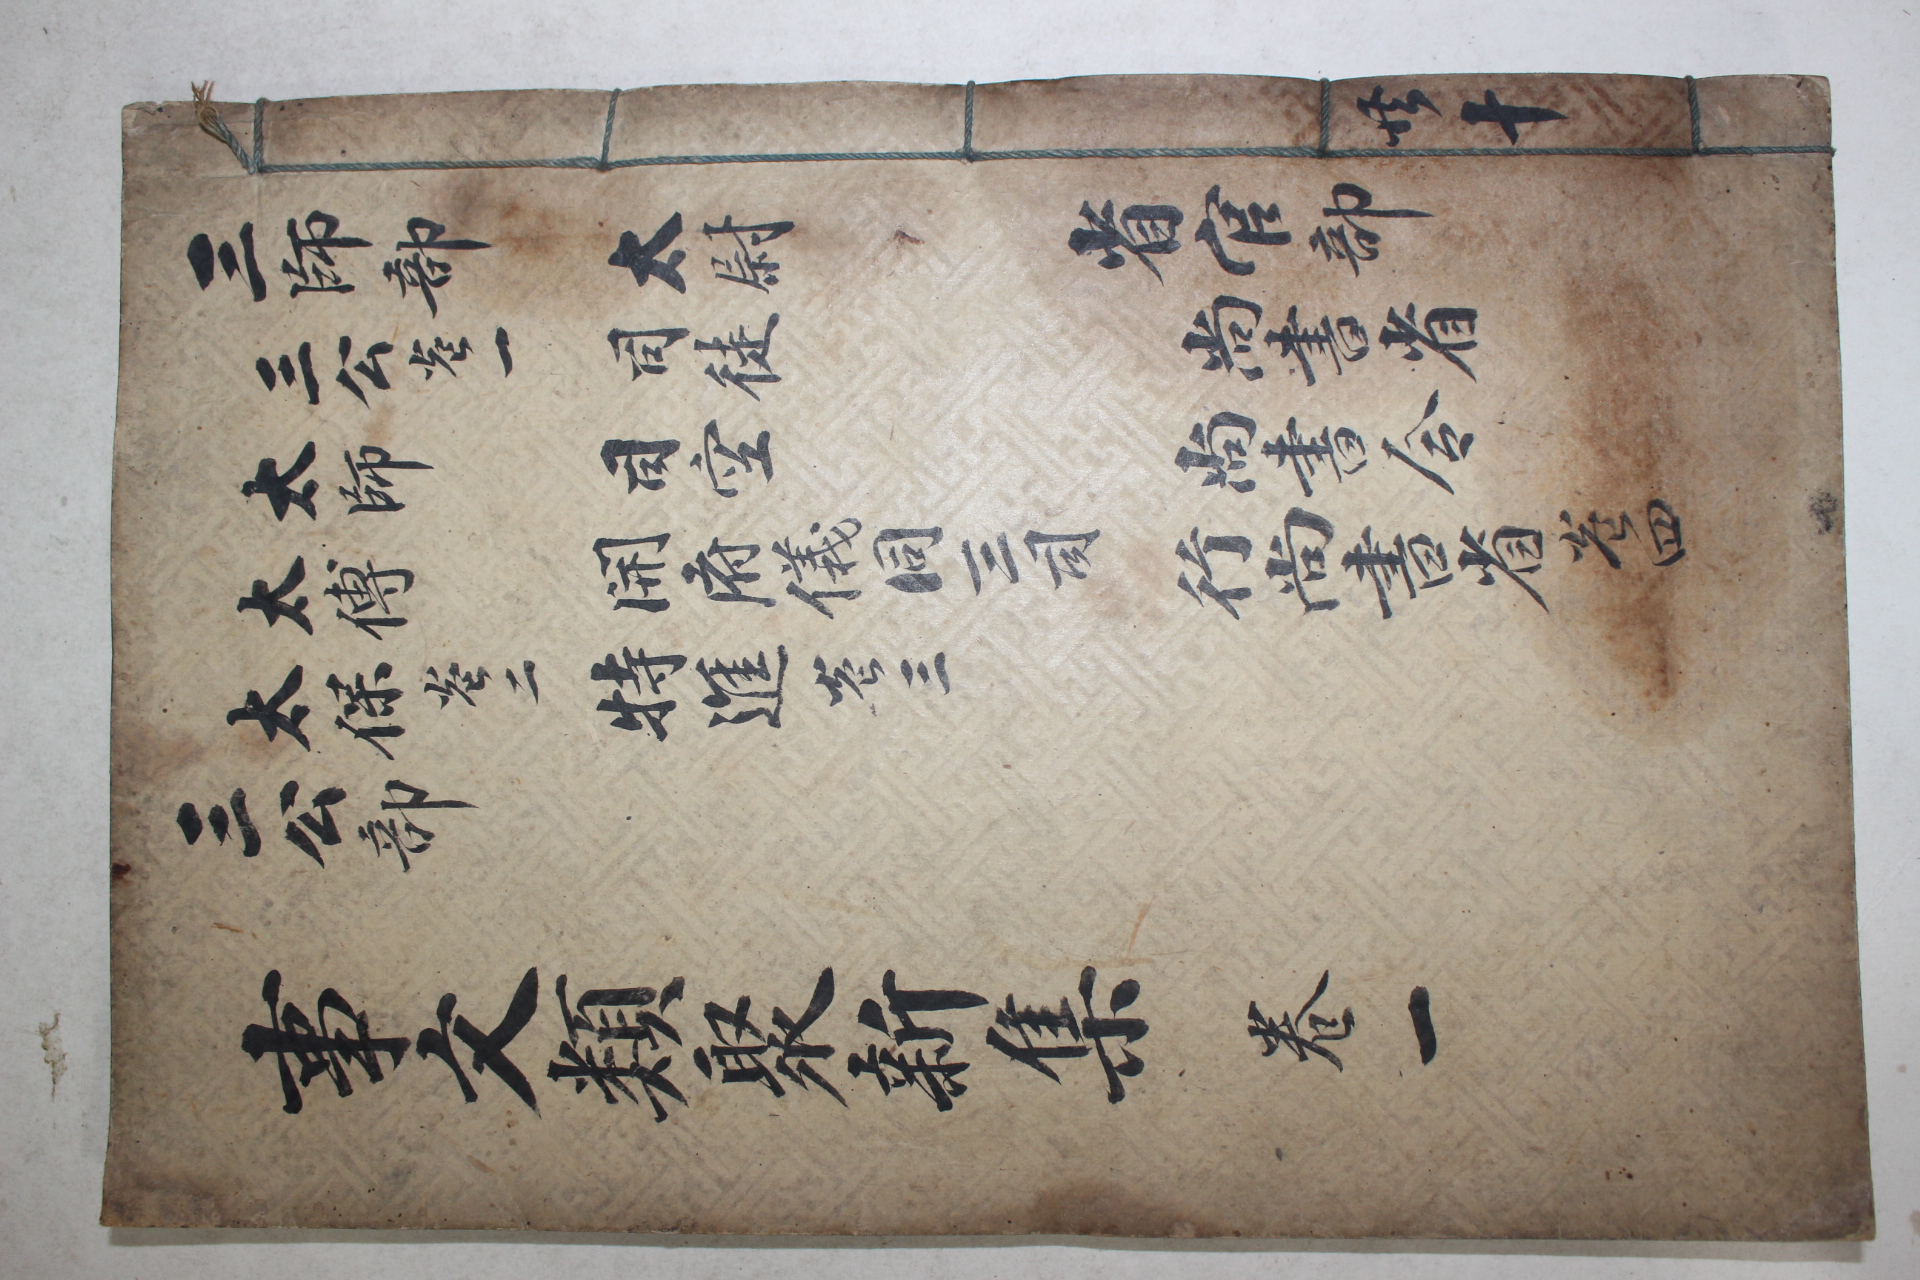 三師部
三公卷一
太師
太傅
太保卷二
三公部
太尉
司徒
司空
開府儀同三司
特進卷三
省官部
尚書省
尚書令
行尚書省卷四
事文類聚新集 卷一
共十